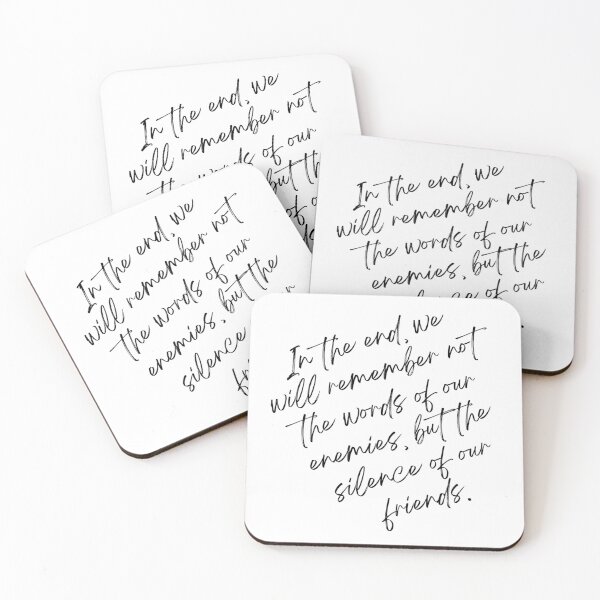 In the end, we
will remember not
the words of our
but th
of o
In the end, we
will remember not
the words of our
enemies, but the
silence
fri
In the end, we
will remember not
the words of our
enemies, but the
of our
In the end, we
will remember not
the words of our
enemies, but the
silence of our
friends.